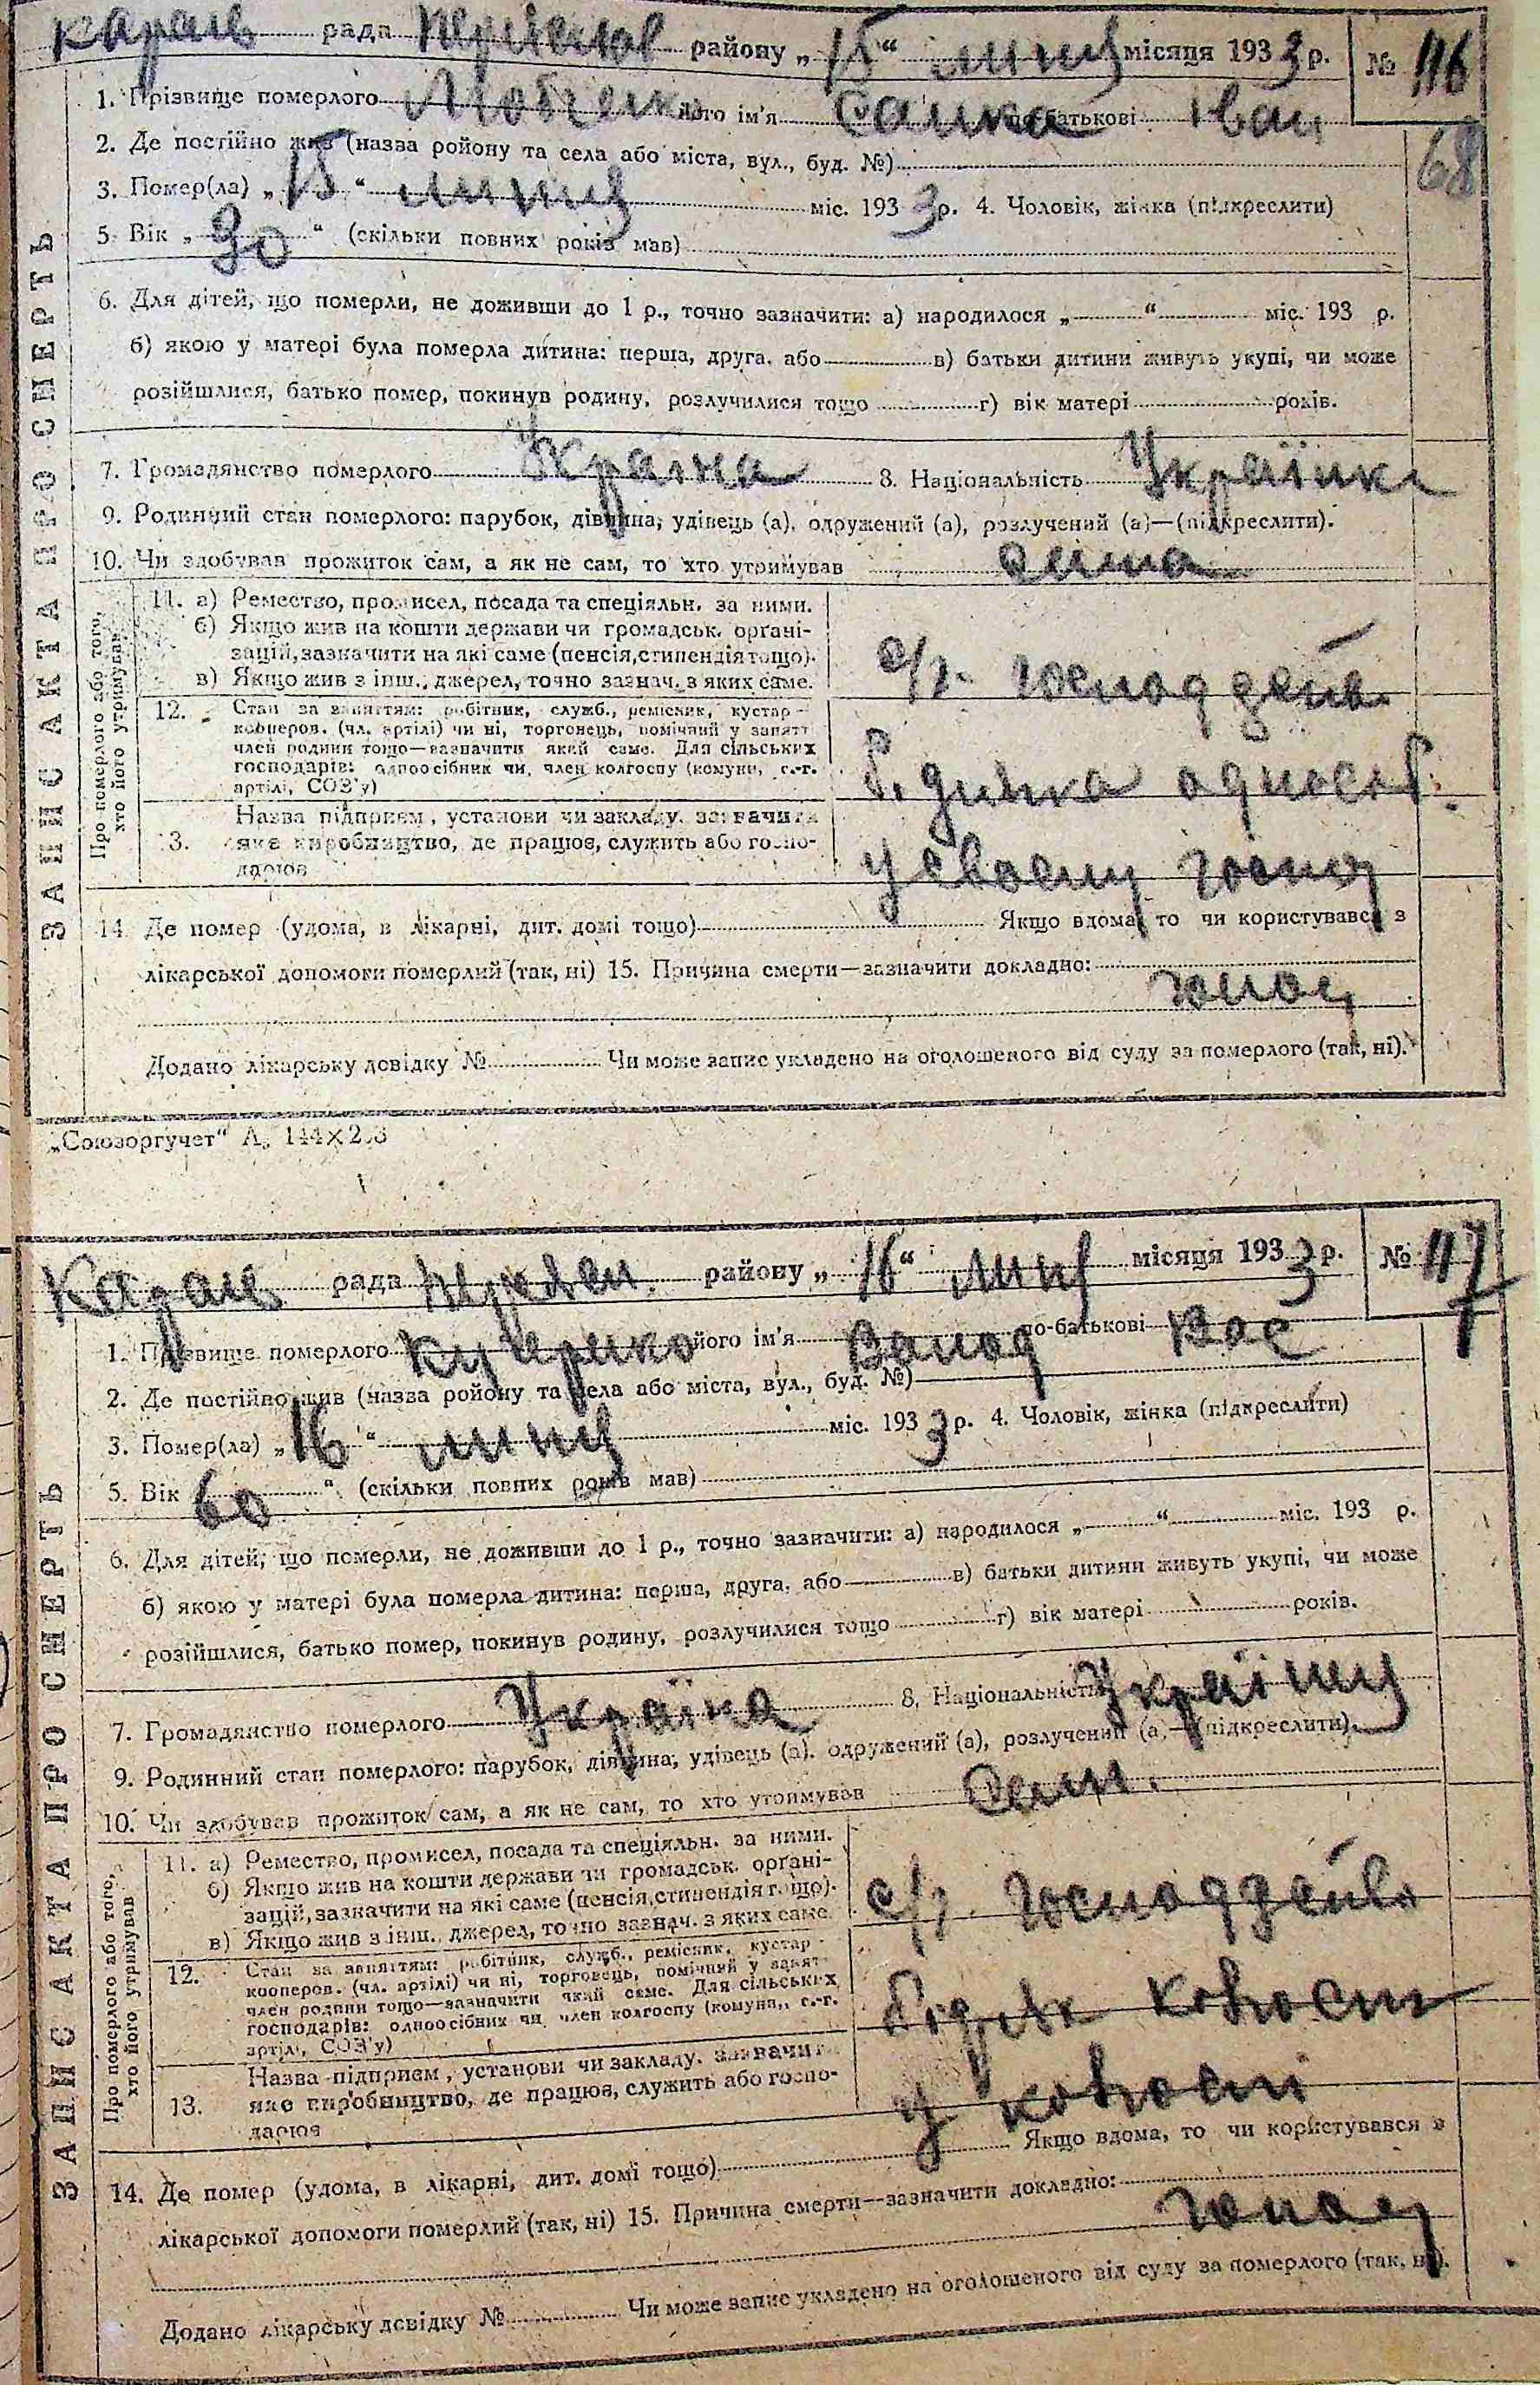 Карань рада Переяслов району „15“ липня місяця 1933 р. № 116
1. Прізвище померлого його ім'я по-батькові Іван
68
2. Де постійно жив (назва ройону та села або міста, вул., буд. №)
3. Помер(ла) „15“ липня міс. 1933 р. 4. Чоловік, жінка (підкреслити)
5. Вік „ “ (скільки повних років мав)
6. Для дітей, що померли, не доживши до 1 р., точно зазначити: а) народилося „ “ міс. 193 р.
б) якою у матері була померла дитина: перша, друга, або в) батьки дитини живуть укупі, чи може
розійшлися, батько помер, покинув родину, розлучилися тощо г) вік матері років.
7. Громадянство померлого Україна 8. Національність Українка
9. Родинний стан померлого: парубок, дівчина, удівець (а), одружений (а), розлучений (а)—(підкреслити).
10. Чи здобував прожиток сам, а як не сам, то хто утримував
ЗАПИС АКТА ПРО СМЕРТЬ
Про померлого або того, хто його утримував
11. а) Ремество, промисел, посада та спеціяльн. за ними.
б) Якщо жив на кошти держави чи громадськ. органі-
зацій, зазначити на які саме (пенсія, стипендія тощо).
в) Якщо жив з інш., джерел, точно зазнач. з яких саме.
с/г.
12. Стан за заняттям: робітник, служб., ремісник, кустар
кооперов. (чл. артілі) чи ні, торговець, помічний у занятт
член родини тощо—зазначити який саме. Для сільських
господарів: одноосібник чи, член колгоспу (комуни, с.-г.
артілі, СОЗ'у)
13. Назва підприєм., установи чи закладу, зазначити
яке виробництво, де працює, служить або госпо-
дарює
у своєму господ
14. Де помер (удома, в лікарні, дит. домі тощо) Якщо вдома, то чи користувався з
лікарської допомоги померлий (так, ні) 15. Причина смерти—зазначити докладно:
голод
Додано лікарську довідку № Чи може запис укладено на оголошеного від суду за померлого (так, ні).
„Союзоргучет“
Карань рада Переяслов. району „16“ липня місяця 1933 р. № 117
1. Прізвище померлого його ім'я по-батькові Вас
2. Де постійно жив (назва ройону та села або міста, вул., буд. №)
3. Помер(ла) „16“ липня міс. 1933 р. 4. Чоловік, жінка (підкреслити)
5. Вік 60 “ (скільки повних років мав)
6. Для дітей, що померли, не доживши до 1 р., точно зазначити: а) народилося „ “ міс. 193 р.
б) якою у матері була померла дитина: перша, друга, або в) батьки дитини живуть укупі, чи може
розійшлися, батько помер, покинув родину, розлучилися тощо г) вік матері років.
7. Громадянство померлого Україна 8. Національність
9. Родинний стан померлого: парубок, дівчина, удівець (а), одружений (а), розлучений (а)—(підкреслити).
10. Чи здобував прожиток сам, а як не сам, то хто утримував
ЗАПИС АКТА ПРО СМЕРТЬ
Про померлого або того, хто його утримував
11. а) Ремество, промисел, посада та спеціяльн. за ними.
б) Якщо жив на кошти держави чи громадськ. органі-
зацій, зазначити на які саме (пенсія, стипендія тощо).
в) Якщо жив з інш., джерел, точно зазнач. з яких саме.
с/г.
12. Стан за заняттям: робітник, служб., ремісник, кустар
кооперов. (чл. артілі) чи ні, торговець, помічний у занят
член родини тощо—зазначити який саме. Для сільських
господарів: одноосібник чи, член колгоспу (комуни, с.-г.
артілі, СОЗ'у)
13. Назва підприєм., установи чи закладу, зазначит
яке виробництво, де працює, служить або госпо-
дарює
14. Де помер (удома, в лікарні, дит. домі тощо) Якщо вдома, то чи користувався з
лікарської допомоги померлий (так, ні) 15. Причина смерти—зазначити докладно:
голод
Додано лікарську довідку № Чи може запис укладено на оголошеного від суду за померлого (так, ні).